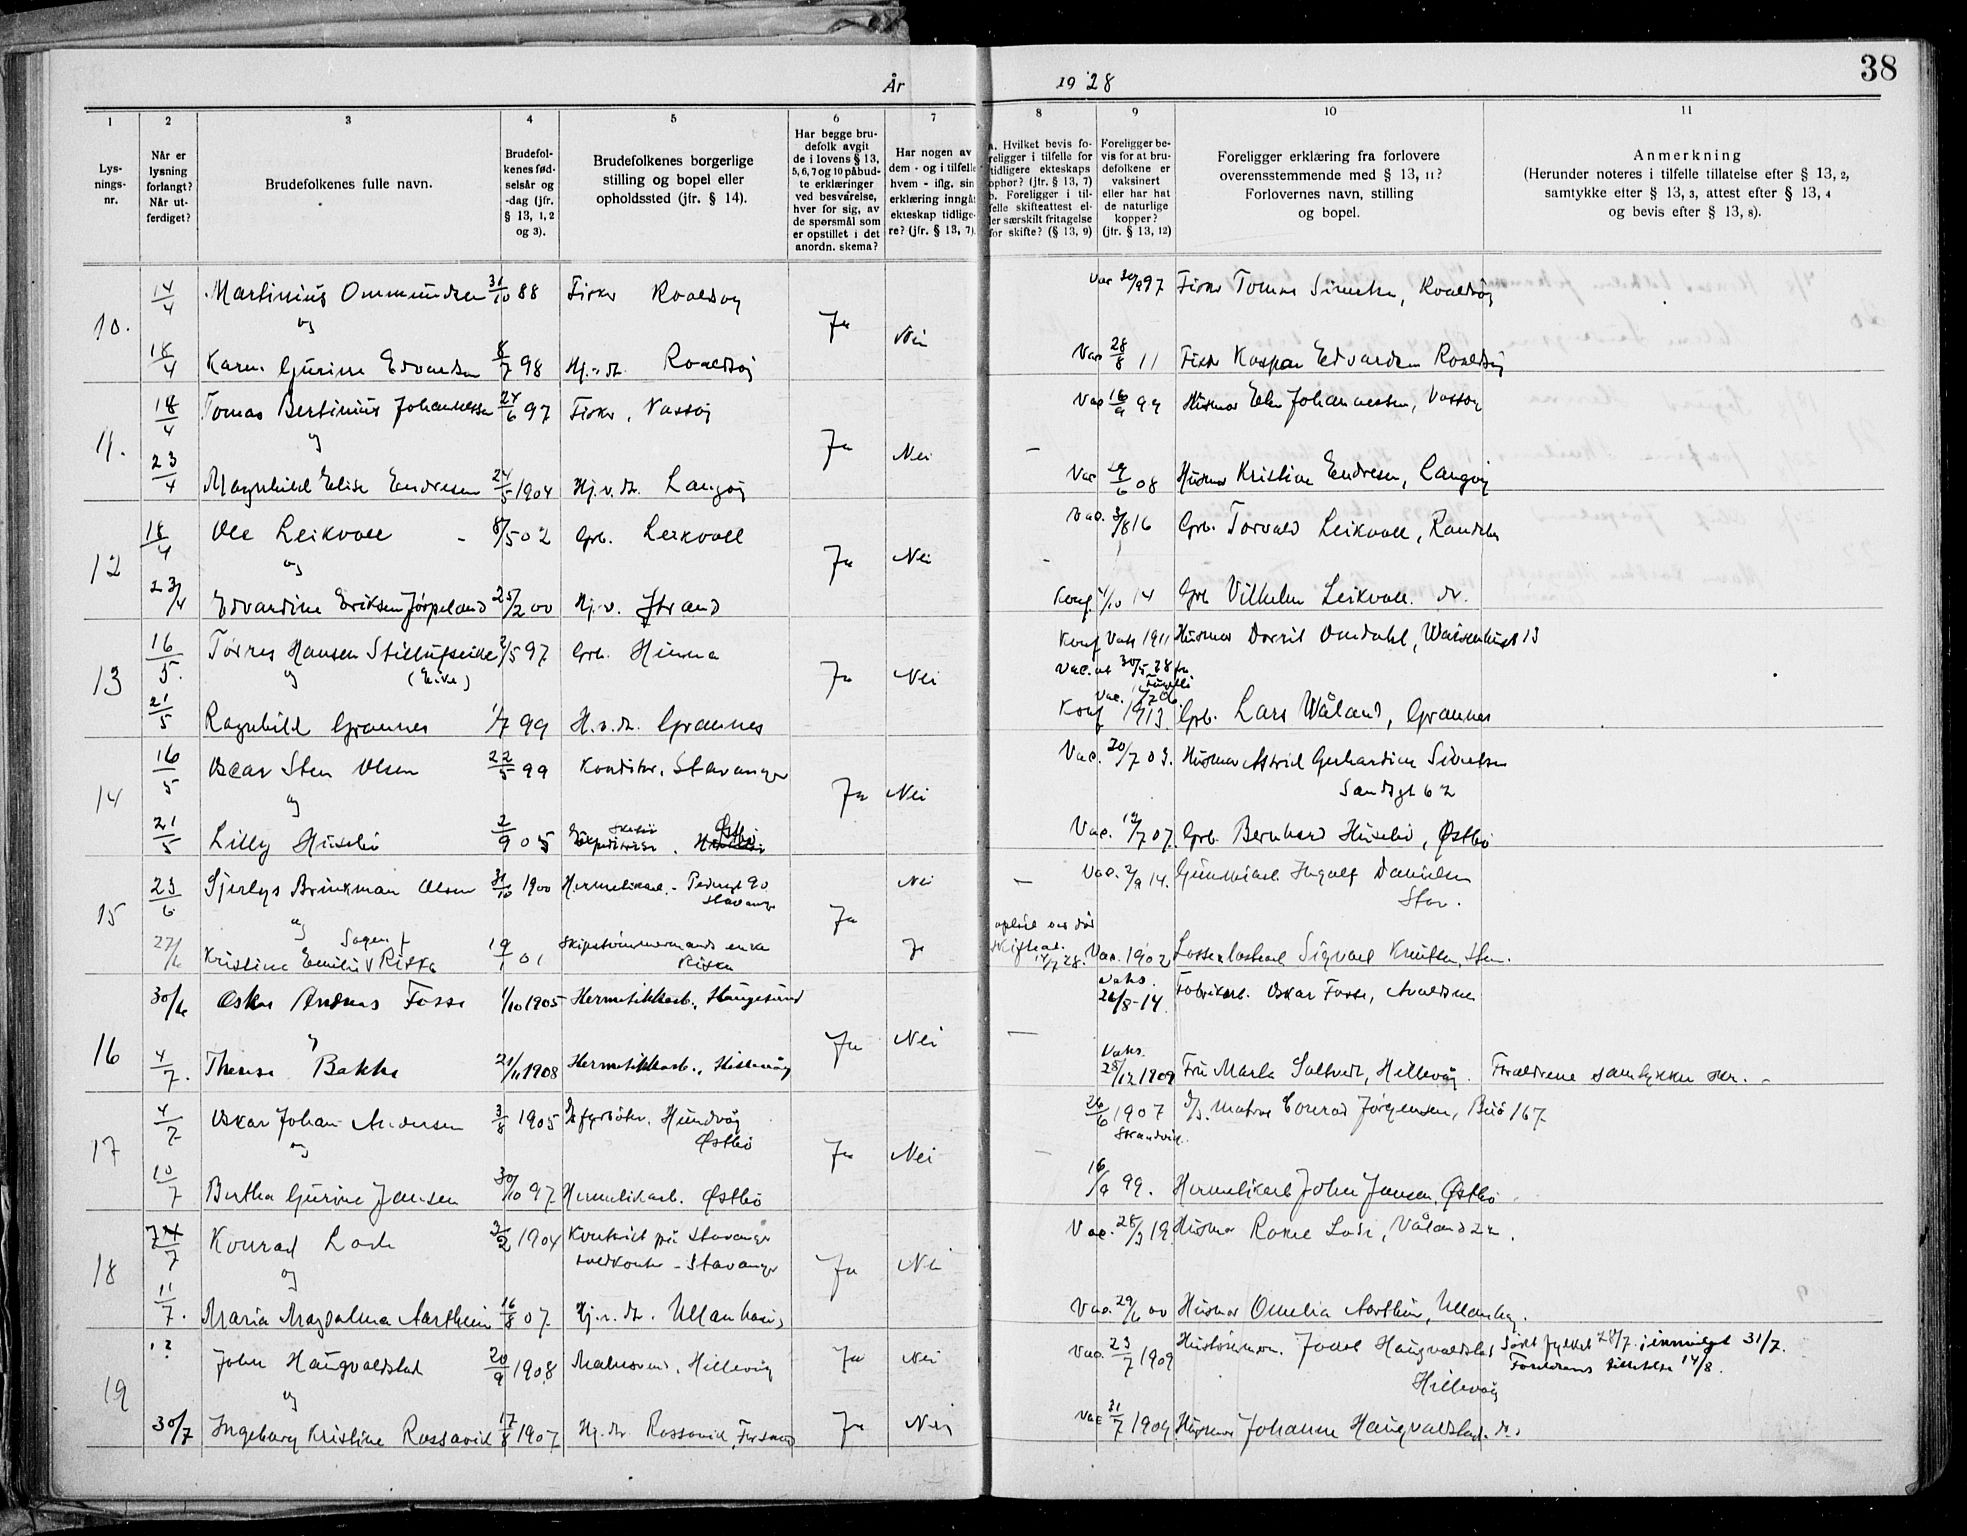 38
År 1928
1 2 3 4 5 6 7 8 9 10 11
Lys-
nings-
nr.
Når er
lysning
forlangt?
Når ut-
ferdiget?
Brudefolkenes fulle navn.
Brudefol-
kenes fød-
selsår og
-dag (jfr.
§ 13, 1, 2
og 3).
Brudefolkenes borgerlige
stilling og bopel eller
opholdssted (jfr. § 14).
Har begge bru-
defolk avgit
de i lovens § 13,
5, 6, 7 og 10 påbud-
te erklæringer
ved besvarelse,
hver for sig, av
de spørsmål som
er opstillet i det
anordn. skema?
Har nogen av
dem - og i tilfelle
hvem - iflg. sin
erklæring inngåt
ekteskap tidlige-
re? (jfr. § 13, 7).
a. Hvilket bevis fo-
religger i tilfelle for
tidligere ekteskaps
ophør? (jfr. § 13, 7)
b. Foreligger i til-
felle skifteattest el-
ler særskilt fritagelse
for skifte? (§ 13, 9)
Foreligger be-
vis for at bru-
defolkene er
vaksinert
eller har hat
de naturlige
kopper?
(jfr. § 13, 12)
Foreligger erklæring fra forlovere
overensstemmende med § 13, 11?
Forlovernes navn, stilling
og bopel.
Anmerkning
(Herunder noteres i tilfelle tillatelse efter § 13, 2,
samtykke efter § 13, 3, attest efter § 13, 4
og bevis efter § 13, 8).
10. 14/4 Martinius Ommundsen 31/10 88 Fisker Roaldsøy Vac 97 Fisker Tomas Simetsen, Roaldsøy
og Ja Nei
18/4 Karen Gurine Edvardsen 8/7 98 Hj.v.d. Roaldsøy Vac 28/8 11 Fisker Kaspar Edvardsen Roaldsøy
11. 18/4 Tomas Bertinius Johannessen 24/6 97 Fisker, Vassøy Vac 16/9 99 Husmor Elen Johannessen, Vassøy
og Ja Nei -
23/4 Magnhild Elise Endresen 24/5 1904 Hj.v.d. Langøy Vac 08 Husmor Kristine Endresen, Langøy
12 18/4 Ole Leikvoll - 8/5 02 Grb. Leikvoll Vac. 3/8 16 Grb. Torvald Leikvoll,
og Ja Nei -
23/4 Edvardine Eriksen Jørpeland 25/2 00 Hj.v. Strand Konf. /10 14 Grb Vilhelm Leikvoll. do.
13 16/5. Torres Hansen 2/5 97 Grb. Hinna Konf Vaks 1911 Husmor Dorrit Omdahl, Waisenhusgt 13
og (Eike) Ja Nei Vac. at 30/5 28 fra
21/5 Ragnhild Grannes 1/7 99 H.v.d. Grannes Konf 1913. Grb. Lars Wåland, Grannes
14 16/5 Oscar Sten Olsen 22/5 99 Konditor, Stavanger Vac. 20/7 03. Husmor Astrid Gerhardine Sivertsen
og Ja Nei Sandsgt 62
21/5 Lilly Husebø 2/9 05 Østbø Vac. 12/7 07. Grb. Bernhard Husebø, Østbø
15 23/6 Brinkman Olsen 31/10 1900 Hermetikarb. - Pedersgt 90 Stavanger Nei — Vac. 2/9 14. Ingolf Danielsen
Stav.
og Ja
27/6 Kristine Emilie Riska 19/1 01 Skipstømmermands enke Riska Ja 14/7 28. Vac. 1902 Sigvald Knutsen, Stav.
16 30/6 Oskar Andreas Fosse 1/10 1905 Hermetikkarb., Haugesund Vaks. 26/8-14 Fabrikarb. Oskar Fosse, Avaldsnes
Ja Nei —
4/7. Therese Bakke 21/11 1908 Hermetikkarb., Hillevåg Vaks. 28/12 1909 Fru Marta Saltvedt, Hillevåg. Foreldrene samtykker skr. -
17 4/7 Oskar Johan Andersen 3/8 1905 fyrbøter. Hundvåg Østbø 26/6 1907 Matros Conrad Jørgensen, Buø 167.
og Ja Nei -
10/7 Bertha Gurine Jensen 30/10 97 Hermetikarb. Østbø 16/9 99. Hermetikarb John Jensen, Østbø
18 7/7 Konrad Lode 3/2 1904 Kontorist på Stavanger tollkontor - Stavanger Vac. 28/3 19. Husmor Rakel Lode, Våland 22.
og Ja Nei
11/7. Maria Magdalena Aartheim 16/8 07. Hj.v.d. Ullanhaug Vac. 29/6 00 Husmor Omelia Aartheim, Ullanhaug.
19 John Haugvaldstad 20/9 1908 Hillevåg Ja Nei Vac. 23/7 1909 Joael Haugvaldstad Hillevåg Søkt fylket 28/7. innvilget 31/7.
Foreldrenes tillatelse 14/8.
og
30/7 Ingeborg Kristine Rossavik 17/8 1907 Hj.dtr. Rossavik, Forsand Ja Nei Vac 21/7 1909 Husmor Johanne Haugvaldstad. do.